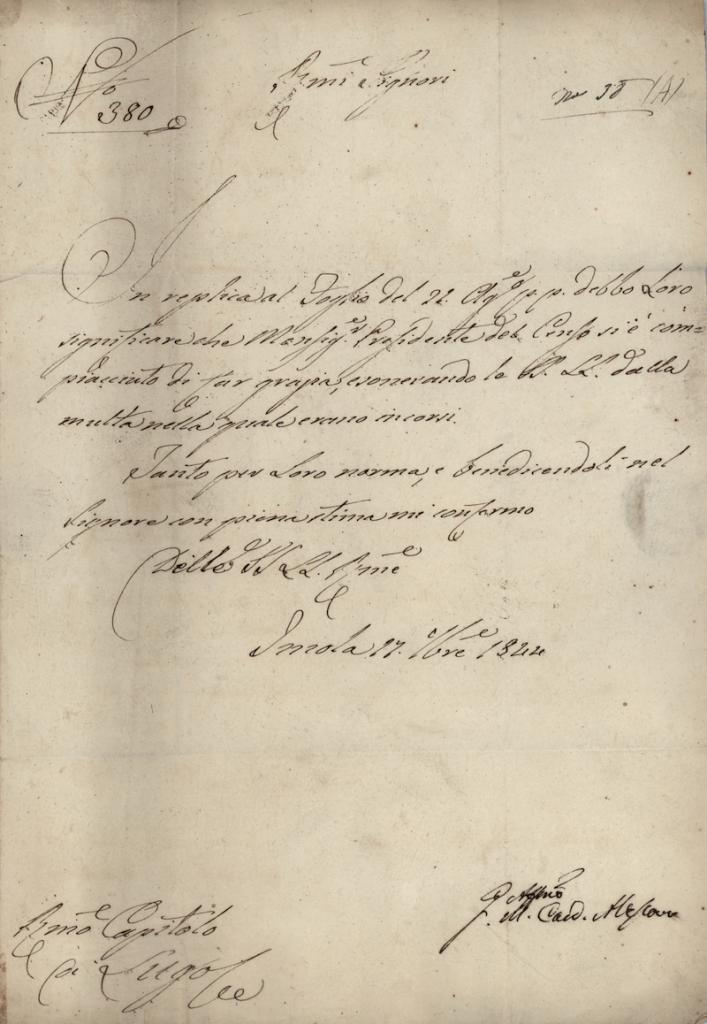 N.o 380
Rmi Signori
no 38 (A)
In replica al Foglio del 21. Ag.o p.p. debbo Loro
significare che Monsig.r Presidente del Censo si è com=
piaciuto di far grazia, esonerando le SS. LL. dalla
multa nella quale erano incorsi.
Tanto per Loro norma, e benedicendoli nel
Signore con piena stima mi confermo
Delle SS LL. Rme
Imola 17. 1844
Rmo Capitolo
di Lugo
Affmo
G. M. Card. Vescovo